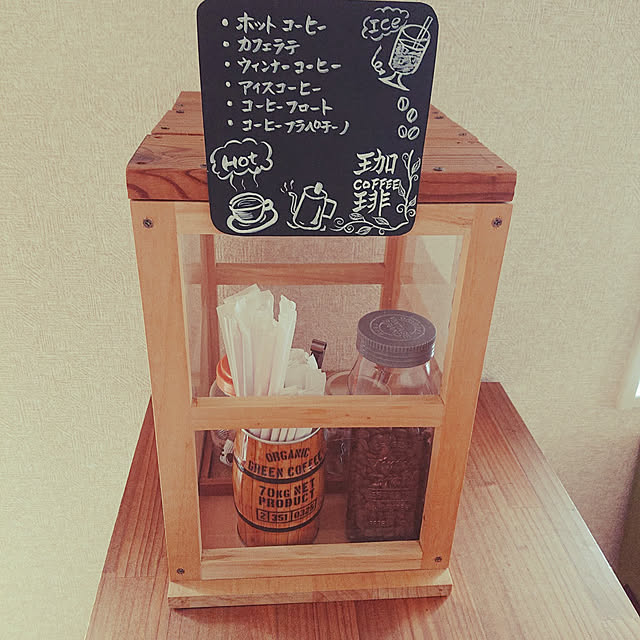 ・ホットコーヒー
・カフェラテ
・ウィンナーコーヒー
・アイスコーヒー
・コーヒーフロート
・コーヒーフラペチーノ
ICE
Hot
珈
COFFEE
琲
ORGANIC
GREEN COFFEE
70KG NET
PRODUCT
2 351 0325